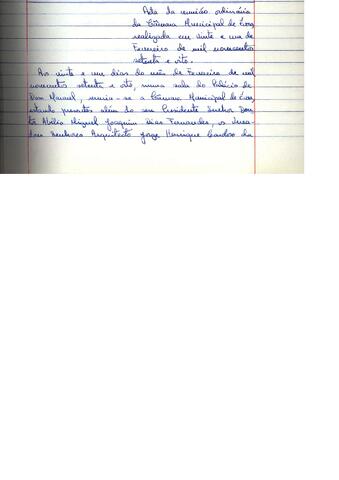 Acta da reunião ordinária
da Câmara Municipal de Évora
realizada em vinte e um de
Fevereiro de mil novecentos
setenta e oito.
Aos vinte e um dias do mês de Fevereiro de mil
novecentos setenta e oito, numa sala do Palácio de
Dom Manuel, reuniu-se a Câmara Municipal de Évora,
estando presentes além do seu Presidente Senhor Dou-
tor Abílio Miguel Joaquim Dias Fernandes, os Verea-
dores Senhores Arquitecto Jorge Henrique Cardoso da